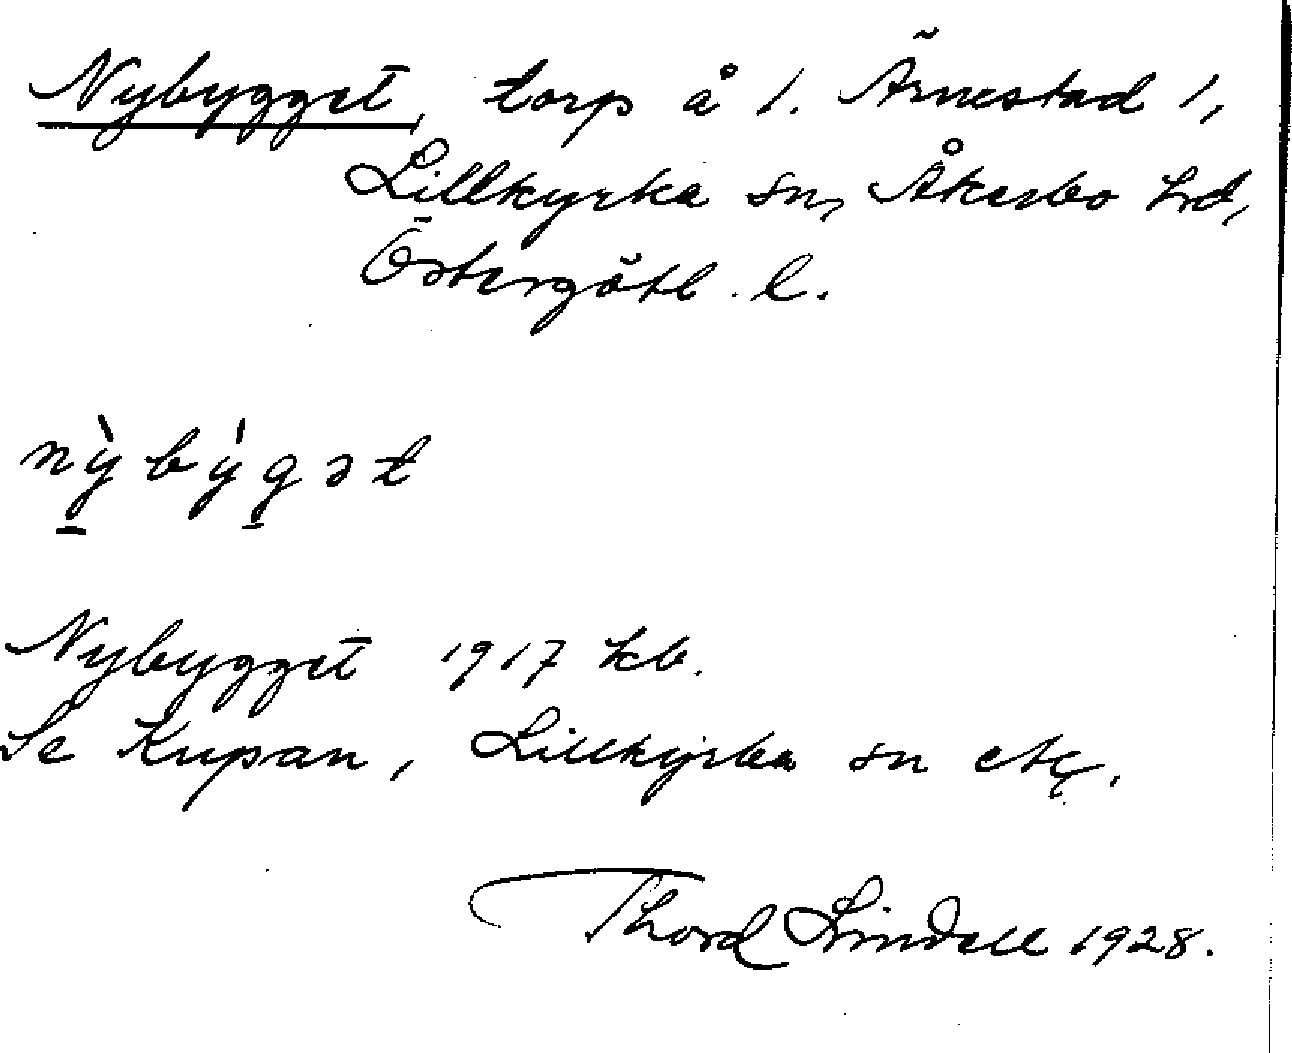 Nybygget, torp å 1. Ärnestad 1,
Lillkyrka sn, Åkerbo hd,
Östergötl. l.
nỳbýgət
Nybygget 1917 kb.
Se Kupan, Lillkyrka sn etc.
Thord Lindell 1928.